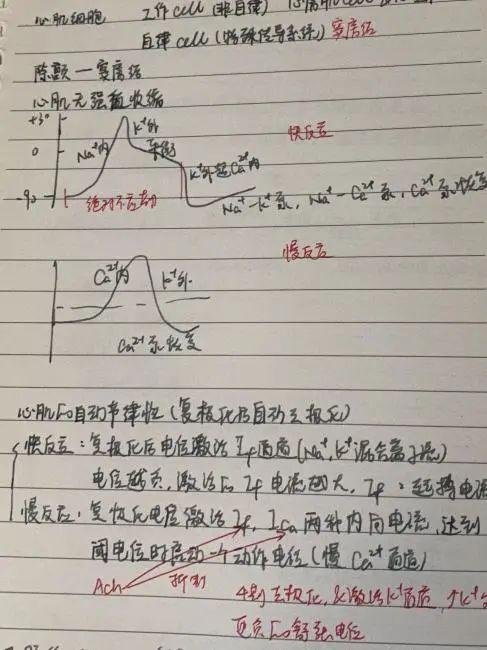 心肌细胞 工作cell (非自律) 心房肌cell
自律cell (特殊传导系统) 窦房结
除颤—窦房结
心肌无强直收缩
+30 K⁺外 快反应
0 Na⁺内 K⁺外＞Ca²⁺内
-90 绝对不应期 Na⁺-K⁺泵, Na⁺-Ca²⁺泵, Ca²⁺泵恢复
慢反应
Ca²⁺内 K⁺外
Ca²⁺泵恢复
心肌的自动节律性 (复极化后自动去极化)
快反应: 复极化后电位激活If通道 (Na⁺, K⁺混合离子流)
电位越负, 激活的If电流越大, If: 起搏电流
慢反应: 复极化电位激活If, ICa两种内向电流, 达到
阈电位时启动一个动作电位 (慢Ca²⁺通道)
Ach 抑制 4期去极化, &激活K⁺通道, ↑K⁺外
更负的舒张电位